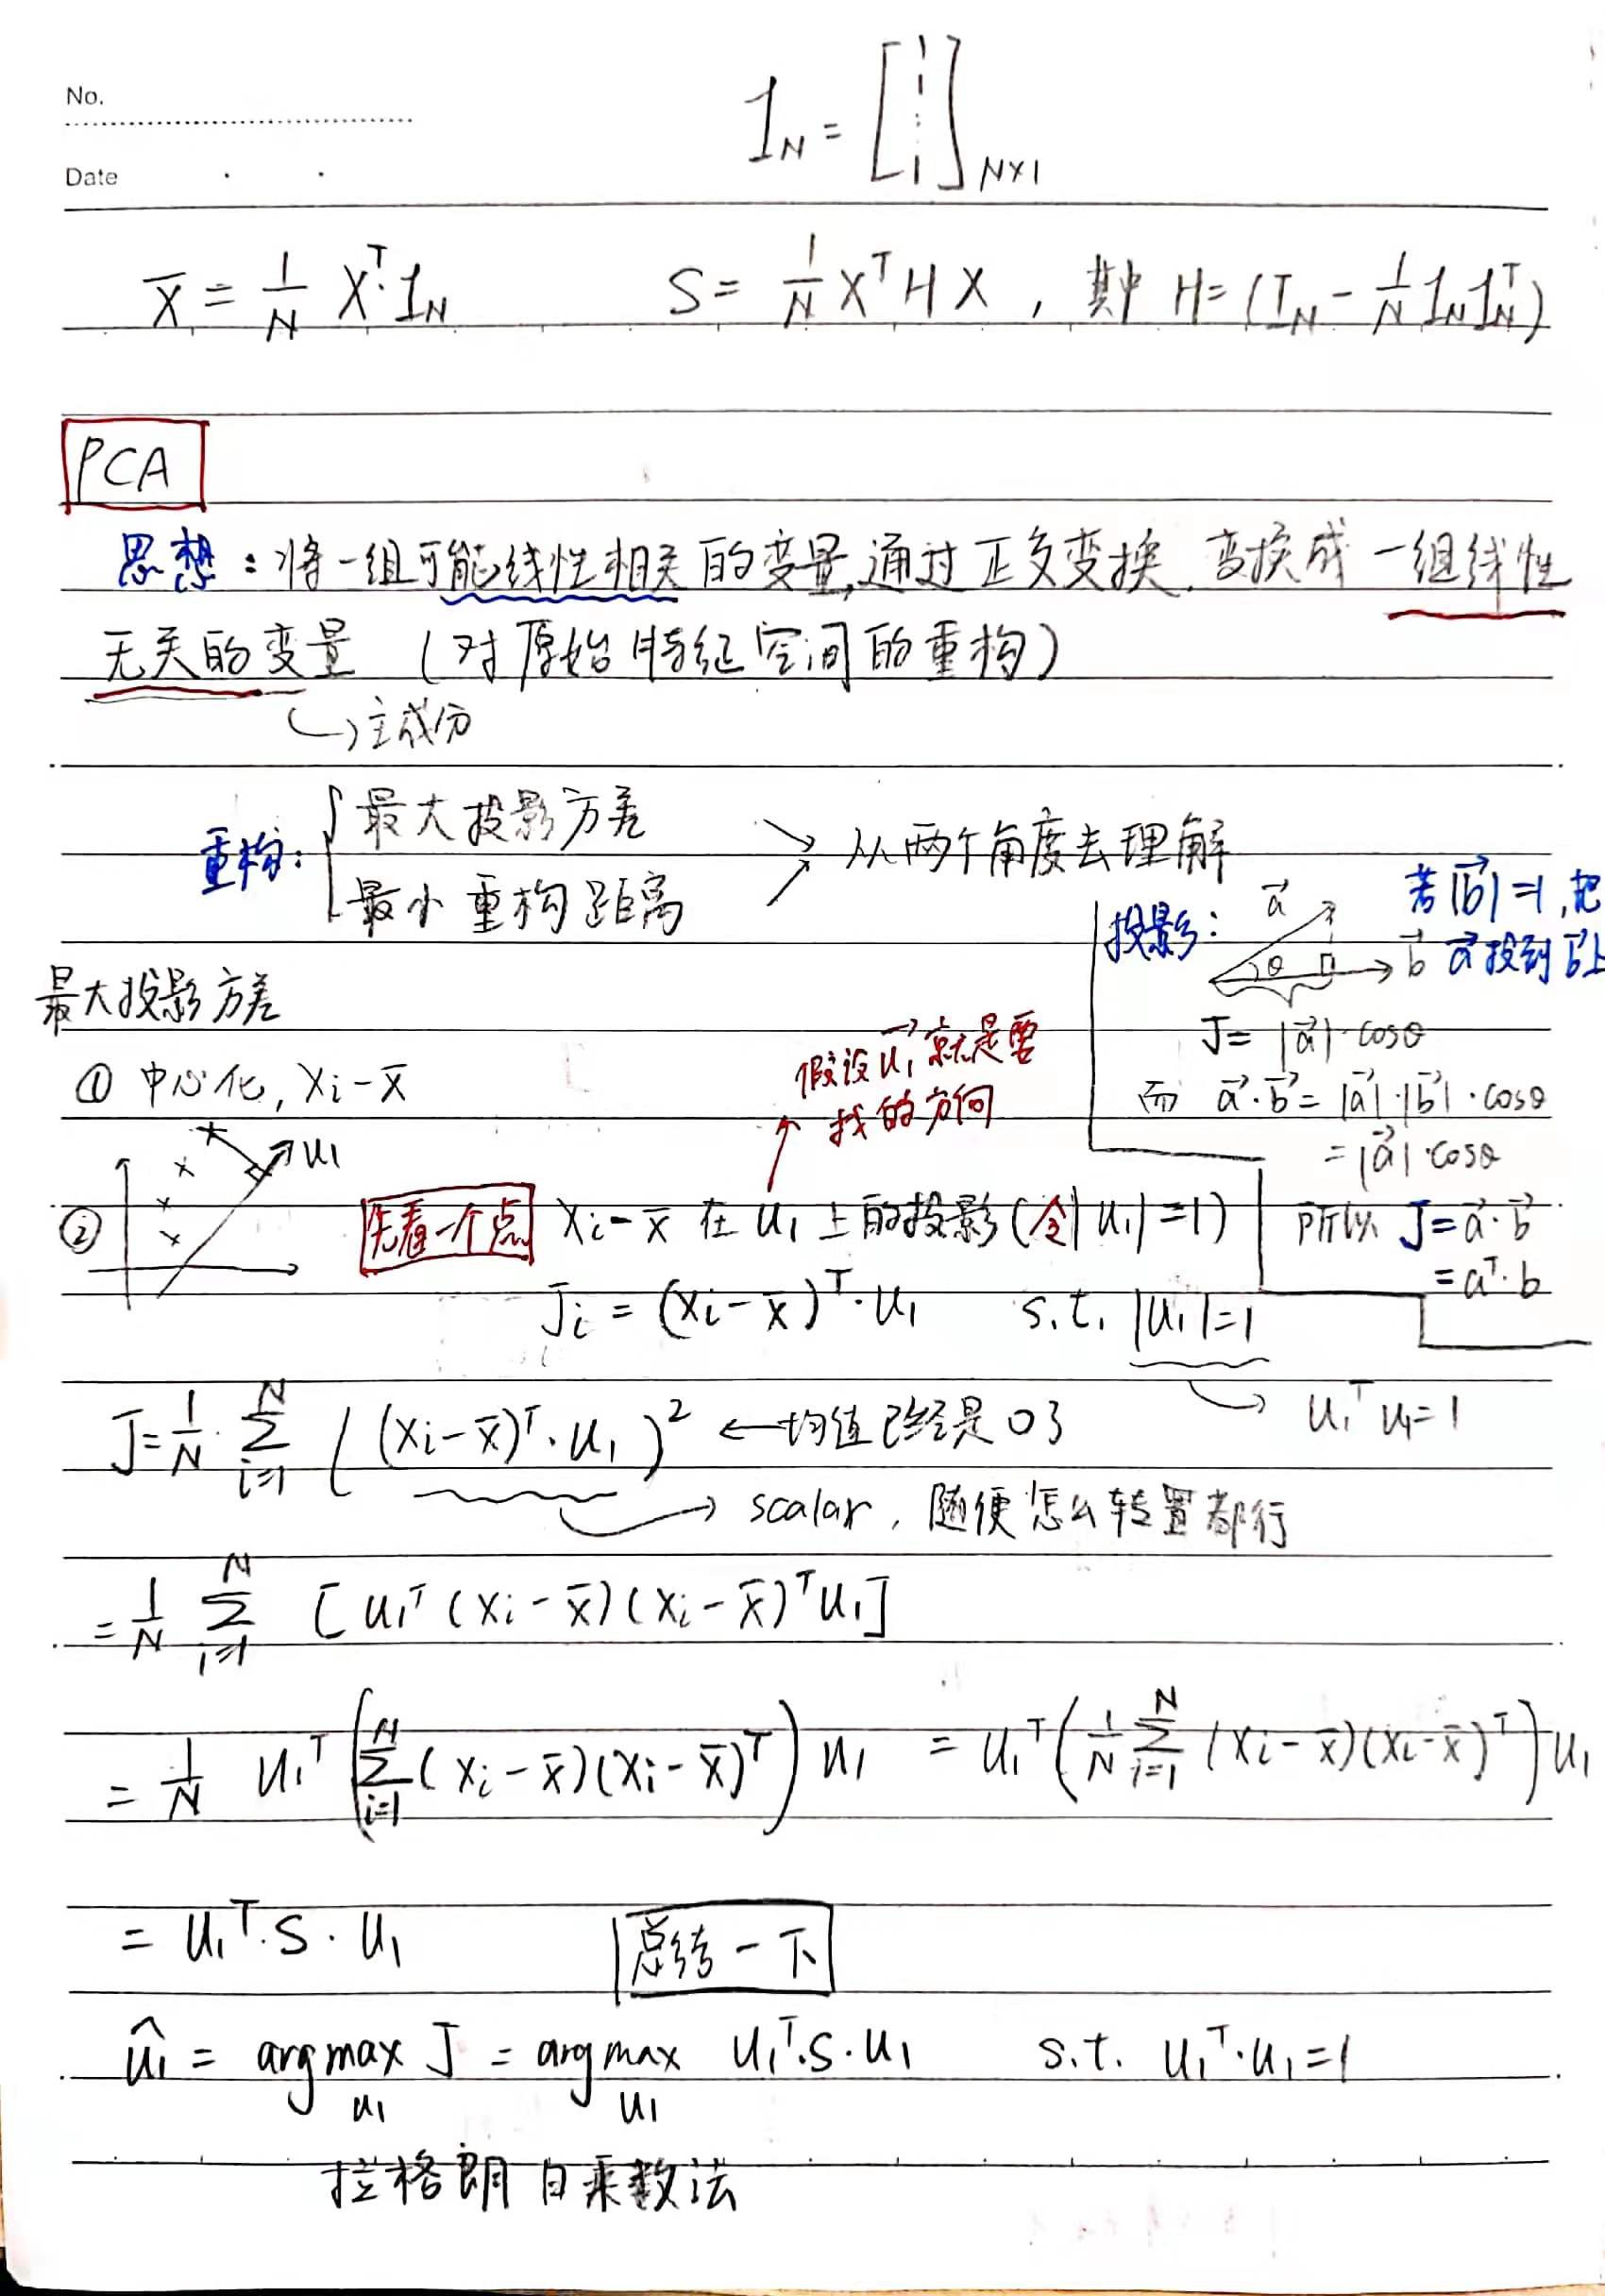 No.
Date
1_N = [1 1 ⋮ 1]_{N×1}
x̄ = 1/N X^T·1_N    S = 1/N X^T H X , 其中 H = (I_N - 1/N 1_N 1_N^T)
PCA
思想：将一组可能线性相关的变量,通过正交变换,变换成一组线性
无关的变量 (对原始特征空间的重构)
↳主成分
重构: { 最大投影方差
最小重构距离
→ 从两个角度去理解
投影: a⃗ θ b⃗
若|b⃗|=1,把
a⃗投到b⃗上
J = |a⃗|·cosθ
而 a⃗·b⃗ = |a⃗|·|b⃗|·cosθ
= |a⃗|·cosθ
所以 J = a⃗·b⃗
= a^T·b
最大投影方差
① 中心化, x_i - x̄
假设u⃗_1就是要
找的方向
② u_1
先看一个点 x_i - x̄ 在 u_1 上的投影(令|u_1|=1)
J_i = (x_i - x̄)^T·u_1    s.t. |u_1|=1
→ u_1^T u_1 = 1
J = 1/N·∑_{i=1}^N ((x_i - x̄)^T·u_1)^2 ← 均值已经是0了
→ scalar, 随便怎么转置都行
= 1/N ∑_{i=1}^N [u_1^T (x_i - x̄)(x_i - x̄)^T u_1]
= 1/N u_1^T (∑_{i=1}^N (x_i - x̄)(x_i - x̄)^T) u_1 = u_1^T (1/N ∑_{i=1}^N (x_i - x̄)(x_i - x̄)^T) u_1
= u_1^T·S·u_1    总结一下
û_1 = argmax_{u_1} J = argmax_{u_1} u_1^T·S·u_1    s.t. u_1^T·u_1=1
拉格朗日乘数法